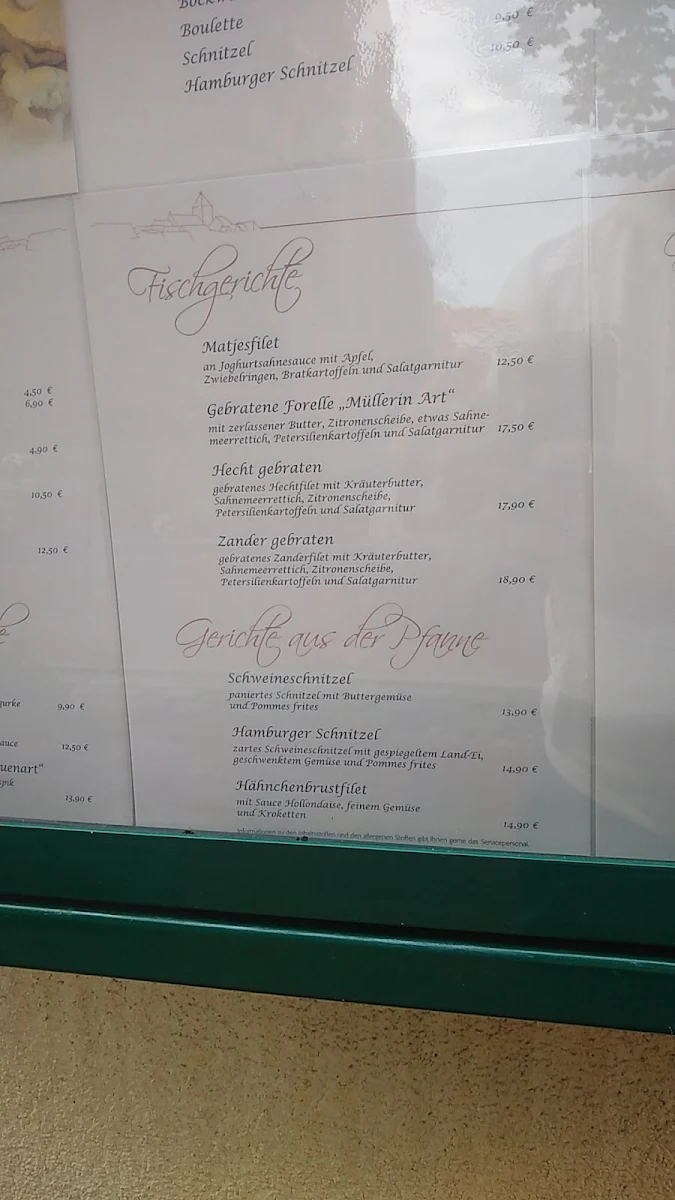 Boulette
Schnitzel
Hamburger Schnitzel
9,50 €
10,50 €
Fischgerichte
Matjesfilet
an Joghurtsahnesauce mit Apfel,
Zwiebelringen, Bratkartoffeln und Salatgarnitur 12,50 €
Gebratene Forelle „Müllerin Art“
mit zerlassener Butter, Zitronenscheibe, etwas Sahne-
meerrettich, Petersilienkartoffeln und Salatgarnitur 17,50 €
Hecht gebraten
gebratenes Hechtfilet mit Kräuterbutter,
Sahnemeerrettich, Zitronenscheibe,
Petersilienkartoffeln und Salatgarnitur 17,90 €
Zander gebraten
gebratenes Zanderfilet mit Kräuterbutter,
Sahnemeerrettich, Zitronenscheibe,
Petersilienkartoffeln und Salatgarnitur 18,90 €
Gerichte aus der Pfanne
Schweineschnitzel
paniertes Schnitzel mit Buttergemüse
und Pommes frites 13,90 €
Hamburger Schnitzel
zartes Schweineschnitzel mit gespiegeltem Land-Ei,
geschwenktem Gemüse und Pommes frites 14,90 €
Hähnchenbrustfilet
mit Sauce Hollondaise, feinem Gemüse
und Kroketten 14,90 €
Informationen zu den Inhaltsstoffen und den allergenen Stoffen gibt Ihnen gerne das Servicepersonal.
4,50 €
6,90 €
4,90 €
10,50 €
12,50 €
gurke 9,90 €
auce 12,50 €
uenart“
spik
13,90 €